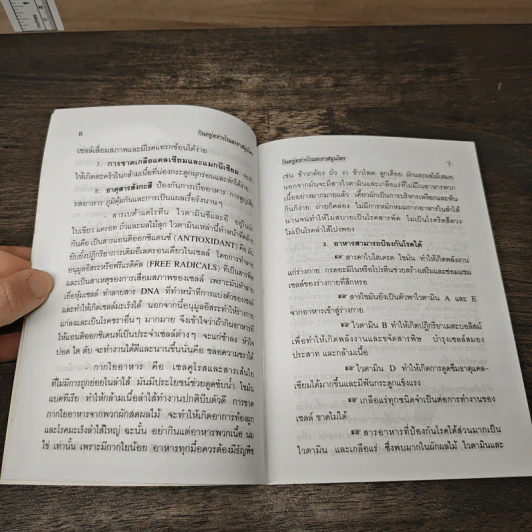 ๖ กินอยู่อย่างไรและยาสมุนไพร
เซลล์เสื่อมสภาพและมีโรคแทรกซ้อนได้ง่าย
๗. การขาดเกลือแคลเซียมและแมกนีเซียม
ให้เกิดตะคริวในกล้ามเนื้อที่น่องกระดูกผุกร่อนและหักได้ง่าย
๘. ธาตุสารสังกะสี ป้องกันการเบื่ออาหาร การสูญเสีย
รสอาหาร ภูมิคุ้มกันและการเป็นแผลเรื้อรังนานๆ
สารเบต้าแคโรทีน ไวตามินซีและอี อยู่ใน
ใบเขียว แครอท ถั่วและผลไม้สุก ไวตามินเหล่านี้ทำหน้าที่
กันคือ เป็นสารแอนติออกซิแดนซ์ (ANTIOXIDANT) คือ
ยับยั้งปฏิกิริยาการเติมอีเลตรอนเดี่ยวในเซลล์ โดยการทำลาย
อนุมูลอิสระหรือฟรีแรดิคัล (FREE RADICALS) ที่เป็นสารพิษ
และเป็นสาเหตุของการเสื่อมสภาพของเซลล์ เพราะมันทำลาย
เยื่อหุ้มเซลล์ ทำลายสาร DNA ที่ทำหน้าที่การแบ่งตัวของเซลล์
และทำให้เกิดเซลล์มะเร็งได้ นอกจากนี้อนุมูลอิสระทำให้ร่างกาย
แก่ลงและเป็นโรคชราอื่นๆ มากมาย จึงเข้าใจว่าถ้ากินอาหารที่
ให้แอนติออกซิแดนท์เป็นประจำเซลล์ต่างๆ จะแก่ช้าลง หัวใจ
ปอด ไต ตับ จะทำงานได้ดีและนานขึ้นนั่นคือ ชลอความชราได้
กากใยอาหาร คือ เซลลูโรสและสารเส้นใย
ที่ไม่มีการถูกย่อยในลำไส้ มันมีประโยชน์ช่วยดูดซับน้ำ ไขมัน
แบคทีเรีย ทำให้กล้ามเนื้อลำไส้ทำงานปกติบีบตัวดี การขาด
กากใยอาหารจากพวกผักสดผลไม้ จะทำให้เกิดอาการท้องผูก
และโรคมะเร็งลำไส้ใหญ่ ฉะนั้น อย่ากินแต่อาหารพวกเนื้อ นม
ไข่ เท่านั้น เพราะมีกากใยน้อย อาหารทุกมื้อควรต้องมีธัญพืช
กินอยู่อย่างไรและยาสมุนไพร ๗
เช่น ข้าวกล้อง ถั่ว งา ข้าวโพด ลูกเดือย ผักและผลไม้เสมอ
นอกจากมันจะมีสารไวตามินและเกลือแร่ที่ไม่มีในอาหารพวก
เนื้ออย่างมากมายแล้ว เคี้ยวผักมันเป็นการบริหารเหงือกและฟัน
กินก็ง่าย ถ่ายก็คล่อง ไม่มีการหมักหมมกากอาหารในลำไส้
นานจนทำให้ไม่สบายเป็นโรคสารพัด ไม่เป็นโรคริดสีดวง
ไม่เป็นโรคลำไส้โป่งพอง
๓. อาหารสามารถป้องกันโรคได้
สารคาโบไฮเดรต ไขมัน ทำให้เกิดพลังงาน
แก่ร่างกาย กรดอะมิโนหรือโปรตีนช่วยสร้างเสริมและซ่อมแซม
เซลล์ของร่างกายที่สึกหรอ
สารไขมันยังเป็นตัวพาไวตามิน A และ E
จากอาหารเข้าสู่ร่างกาย
ไวตามิน B ทำให้เกิดปฏิกิริยาเมตะบอลิสม์
เพื่อทำให้เกิดพลังงานและขจัดสารพิษ บำรุงเซลล์สมอง
ประสาท และกล้ามเนื้อ
ไวตามิน D ทำให้เกิดการดูดซึมธาตุแคล-
เซียมได้มากขึ้นและมีฟันกระดูกแข็งแรง
เกลือแร่ทุกชนิดจำเป็นต่อการทำงานของ
เซลล์ ขาดไม่ได้
สารอาหารที่ป้องกันโรคได้ส่วนมากเป็น
ไวตามิน และเกลือแร่ ซึ่งพบมากในผักผลไม้ ไวตามินและ